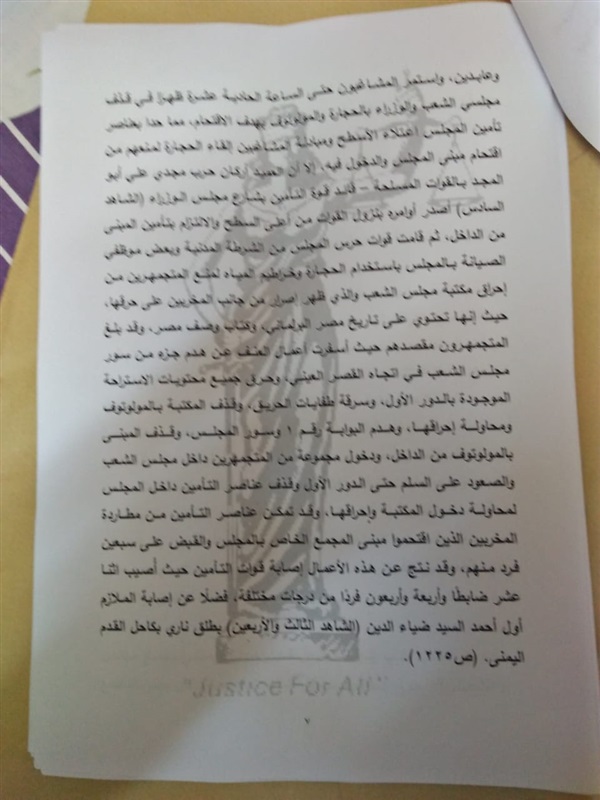 وعابدين، واستمر المشاغبون حتى الساعة الحادية عشرة ظهرًا في قذف
مجلسي الشعب والوزراء بالحجارة والمولوتوف بهدف الاقتحام، مما حدا بعناصر
تأمين المجلس اعتلاء الأسطح ومبادلة المشاغبين إلقاء الحجارة لمنعهم من
اقتحام مبنى المجلس والدخول فيه، إلا أن العميد أركان حرب مجدي علي أبو
المجد بالقوات المسلحة – قائد قوة التأمين بشارع مجلس الوزراء (الشاهد
السادس) أصدر أوامره بنزول القوات من أعلى السطح والالتزام بتأمين المبنى
من الداخل، ثم قامت قوات حرس المجلس من الشرطة المدنية وبعض موظفي
الصيانة بالمجلس باستخدام الحجارة وخراطيم المياه لمنع المتجمهرين من
إحراق مكتبة مجلس الشعب والذي ظهر إصرار من جانب المخربين على حرقها،
حيث إنها تحتوي على تاريخ مصر البرلماني، وكتاب وصف مصر، وقد بلغ
المتجمهرون مقصدهم حيث أسفرت أعمال العنف عن هدم جزء من سور
مجلس الشعب في اتجاه القصر العيني، وحرق جميع محتويات الاستراحة
الموجودة بالدور الأول، وسرقة طفايات الحريق، وقذف المكتبة بالمولوتوف
ومحاولة إحراقها، وهدم البوابة رقم ١ وسور المجلس، وقذف المبنى
بالمولوتوف من الداخل، ودخول مجموعة من المتجمهرين داخل مجلس الشعب
والصعود على السلم حتى الدور الأول وقذف عناصر التأمين داخل المجلس
لمحاولة دخول المكتبة وإحراقها، وقد تمكن عناصر التأمين من مطاردة
المخربين الذين اقتحموا مبنى المجمع الخاص بالمجلس والقبض على سبعين
فرد منهم، وقد نتج عن هذه الأعمال إصابة قوات التأمين حيث أصيب اثنا
عشر ضابطًا وأربعة وأربعون فردًا من درجات مختلفة، فضلًا عن إصابة الملازم
أول أحمد السيد ضياء الدين (الشاهد الثالث والأربعين) بطلق ناري بكاحل القدم
اليمنى. (ص١٢٢٥).
"Justice For All"
٧